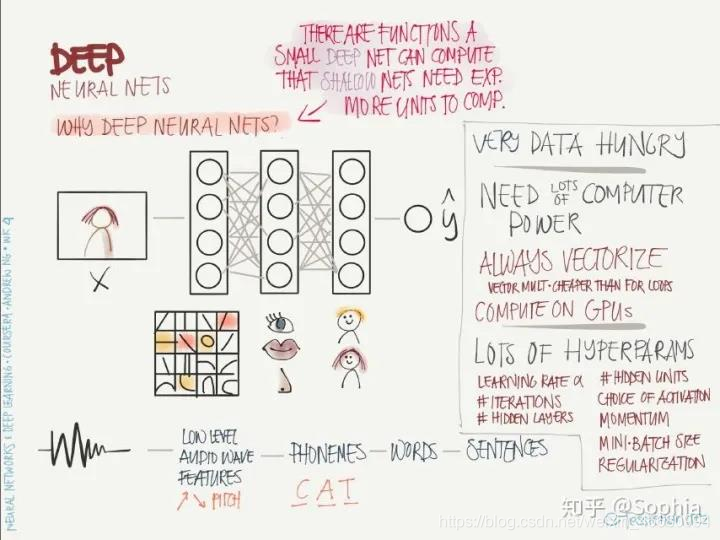 DEEP
NEURAL NETS
THERE ARE FUNCTIONS A
SMALL DEEP NET CAN COMPUTE
THAT SHALLOW NETS NEED EXP.
MORE UNITS TO COMP.
WHY DEEP NEURAL NETS?
X
ŷ
VERY DATA HUNGRY
NEED LOTS OF COMPUTER
POWER
ALWAYS VECTORIZE
VECTOR MULT. CHEAPER THAN FOR LOOPS
COMPUTE ON GPUs
LOTS OF HYPERPARAMS
LEARNING RATE α
# ITERATIONS
# HIDDEN LAYERS
# HIDDEN UNITS
CHOICE OF ACTIVATION
MOMENTUM
MINI-BATCH SIZE
REGULARIZATION
LOW LEVEL
AUDIO WAVE
FEATURES
PITCH
PHONEMES
C A T
WORDS
SENTENCES
NEURAL NETWORKS & DEEP LEARNING • COURSERA • ANDREW NG • WK 4
知乎 @Sophia